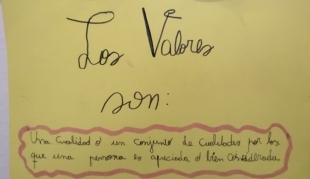 Los Valores
son:
Una Cualidad o un conjunto de Cualidades por los
que una persona es apreciada o bien considerada.